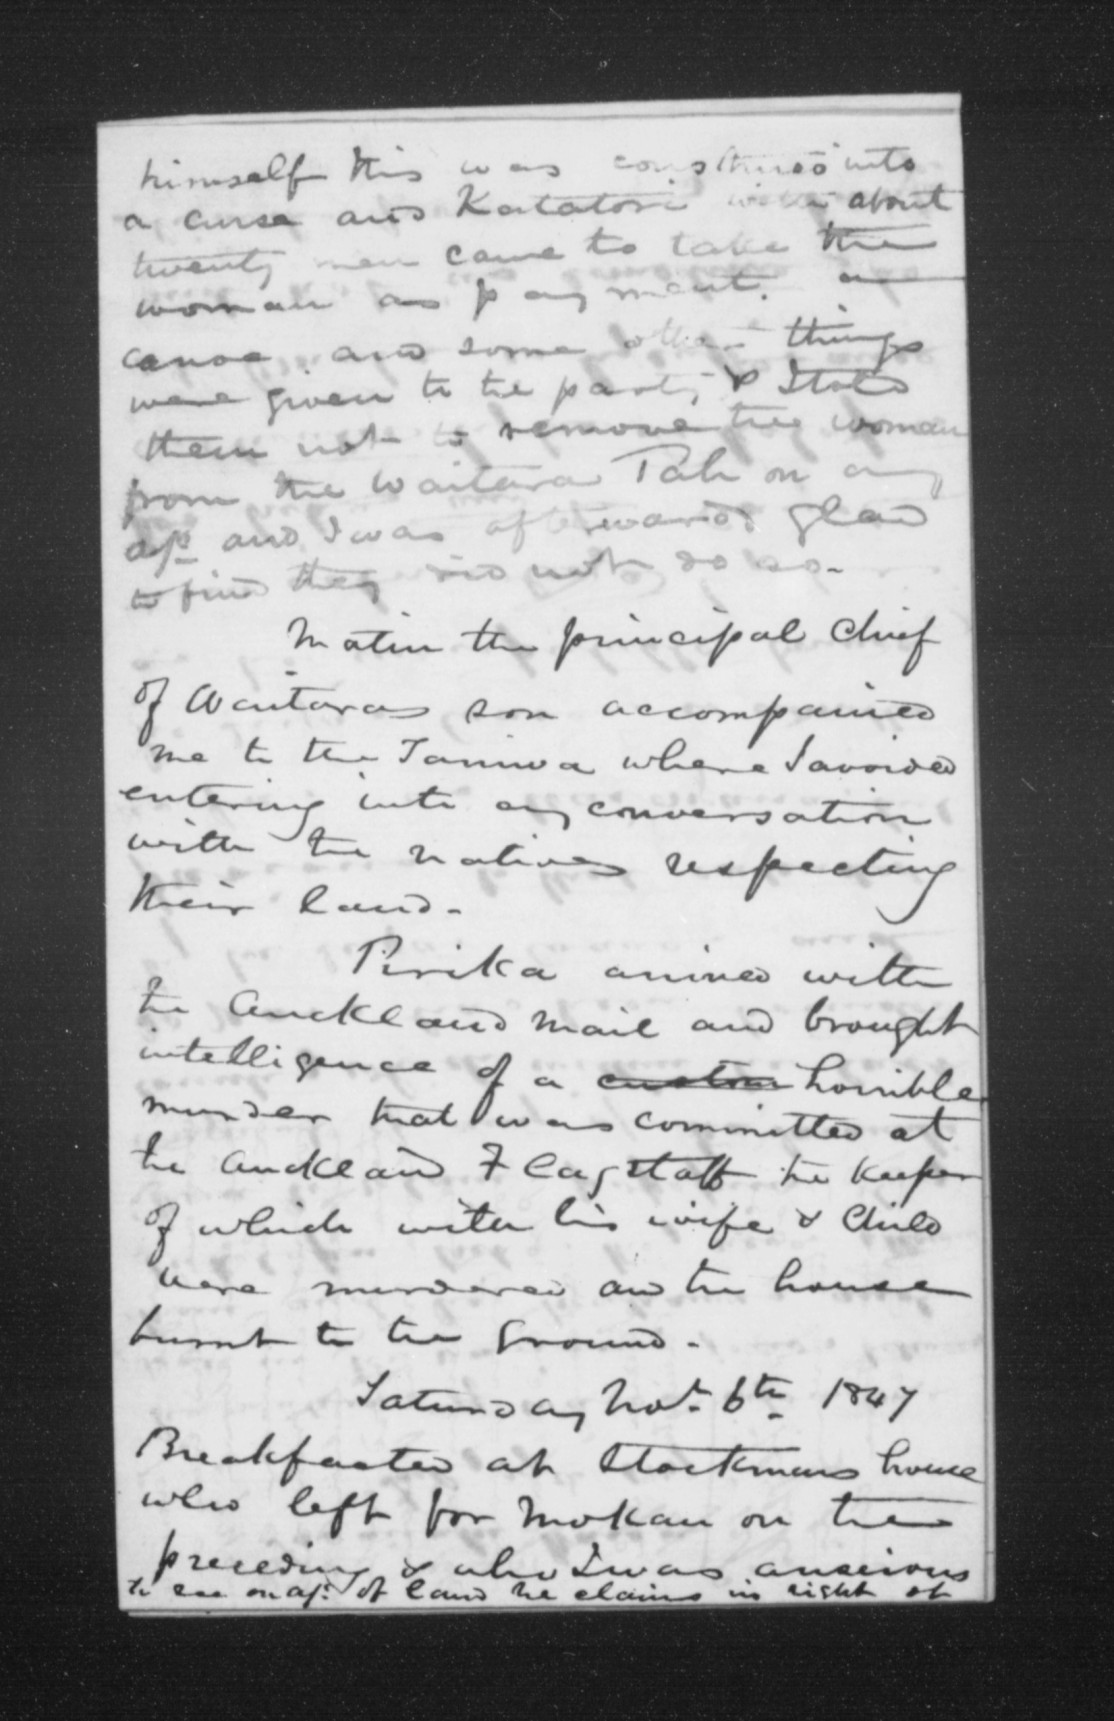 himself this was construed into
a curse and Katatori with about
twenty men came to take the
woman as payment. a
canoe and some other things
were given to the party & I told
them not to remove the woman
from the Waitara Pah on any
a/c and I was afterwards glad
to find they did not do so -
the principal Chief
of Waitaras son accompanied
me to the Taniwa where I avoided
entering into any conversation
with the natives respecting
their land -
Pirika arrived with
the Auckland Mail and brought
intelligence of a custom horrible
murder that was committed at
the Auckland Flagstaff the keeper
of which with his wife & Child
were murdered and the house
burnt to the ground -
Saturday Nov. 6th 1847
Breakfasted at Stockmans house
who left for Mokau on the
preceding & who I was anxious
to see on a/c of land he claims in right of